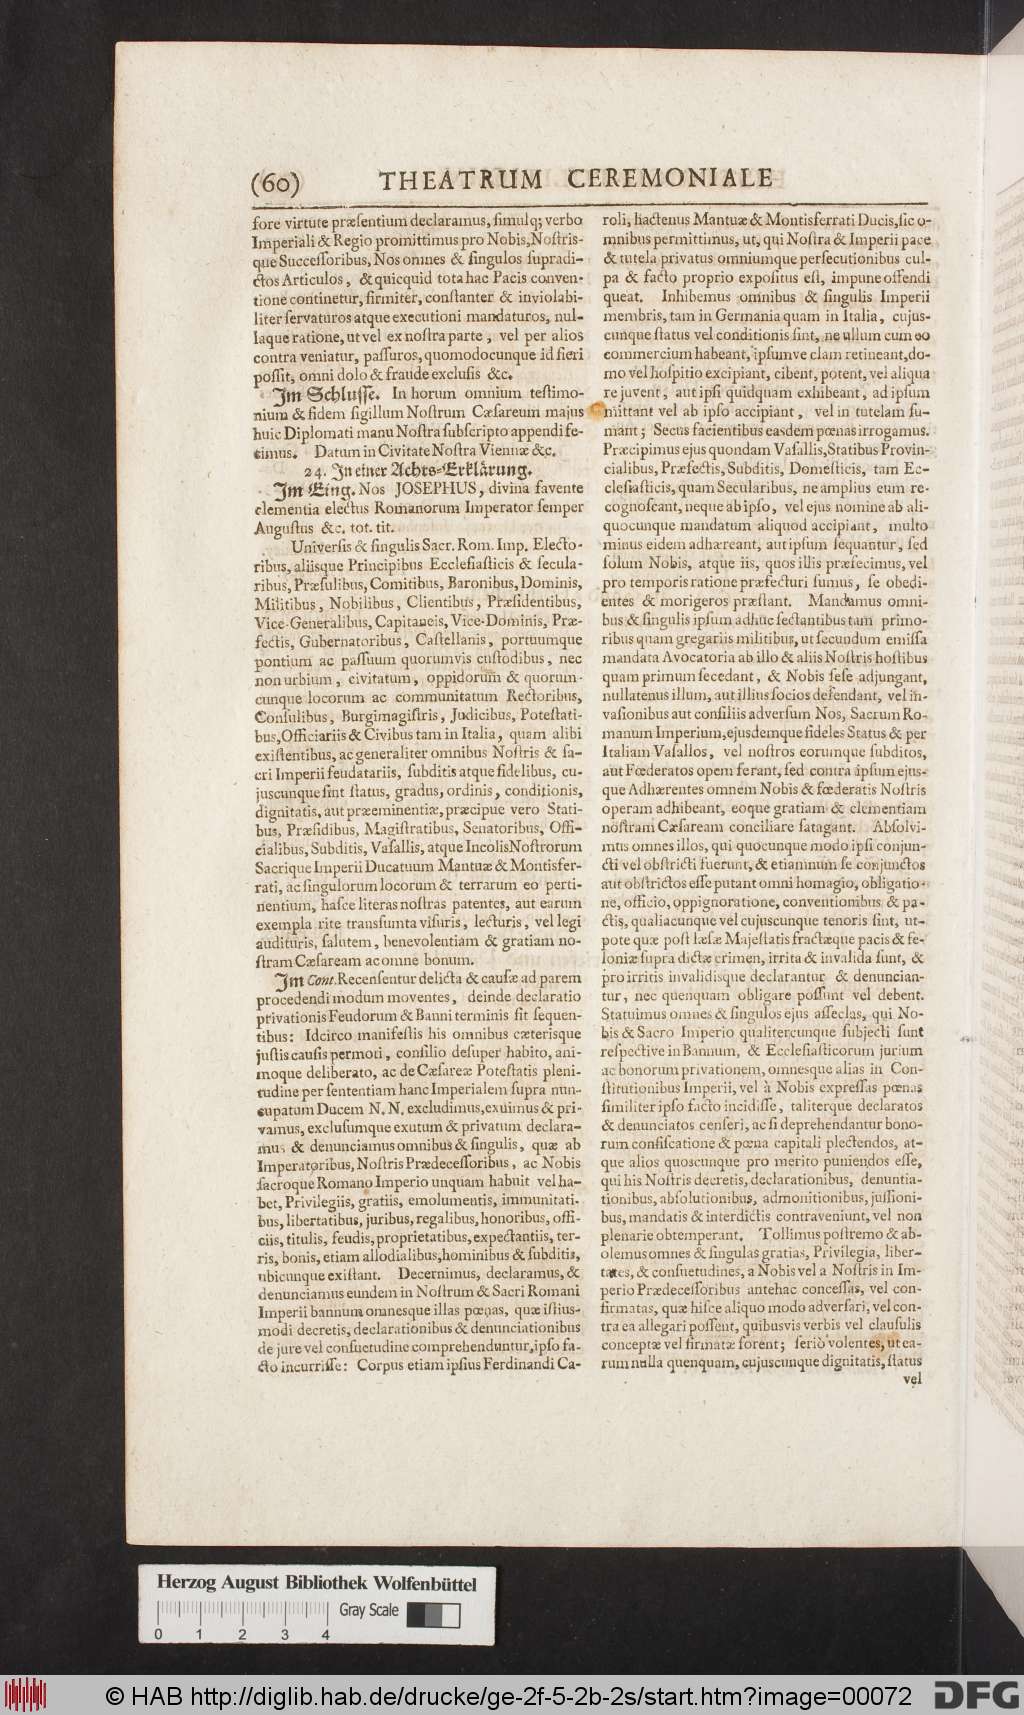 (60) THEATRUM CEREMONIALE
fore virtute præſentium declaramus, ſimulq; verbo
Imperiali & Regio promittimus pro Nobis, Noſtris-
que Succeſſoribus, Nos omnes & ſingulos ſupradi-
ctos Articulos, & quicquid tota hac Pacis conven-
tione continetur, firmiter, conſtanter & inviolabi-
liter ſervaturos atque executioni mandaturos, nul-
laque ratione, ut vel ex noſtra parte, vel per alios
contra veniatur, paſſuros, quomodocunque id fieri
poſſit, omni dolo & fraude excluſis &c.
Im Schluſſe. In horum omnium teſtimo-
nium & fidem ſigillum Noſtrum Cæſareum majus
huic Diplomati manu Noſtra ſubſcripto appendi fe-
cimus. Datum in Civitate Noſtra Viennæ &c.
24. In einer Achts-Erklärung.
Im Eing. Nos JOSEPHUS, divina favente
clementia electus Romanorum Imperator ſemper
Auguſtus &c. tot. tit.
Univerſis & ſingulis Sacr. Rom. Imp. Electo-
ribus, aliisque Principibus Eccleſiaſticis & ſecula-
ribus, Præſulibus, Comitibus, Baronibus, Dominis,
Militibus, Nobilibus, Clientibus, Præſidentibus,
Vice-Generalibus, Capitaneis, Vice-Dominis, Præ-
fectis, Gubernatoribus, Caſtellanis, portuumque
pontium ac paſſuum quorumvis cuſtodibus, nec
non urbium, civitatum, oppidorum & quorum-
cunque locorum ac communitatum Rectoribus,
Conſulibus, Burgimagiſtris, Judicibus, Poteſtati-
bus, Officiariis & Civibus tam in Italia, quam alibi
exiſtentibus, ac generaliter omnibus Noſtris & ſa-
cri Imperii feudatariis, ſubditis atque fidelibus, cu-
juscunque ſint ſtatus, gradus, ordinis, conditionis,
dignitatis, aut præeminentiæ, præcipue vero Stati-
bus, Præſidibus, Magiſtratibus, Senatoribus, Offi-
cialibus, Subditis, Vaſallis, atque Incolis Noſtrorum
Sacrique Imperii Ducatuum Mantuæ & Montisfer-
rati, ac ſingulorum locorum & terrarum eo perti-
nentium, haſce literas noſtras patentes, aut earum
exempla rite tranſumta viſuris, lecturis, vel legi
audituris, ſalutem, benevolentiam & gratiam no-
ſtram Cæſaream ac omne bonum.
Im Cont. Recenſentur delicta & cauſæ ad parem
procedendi modum moventes, deinde declaratio
privationis Feudorum & Banni terminis fit ſequen-
tibus: Idcirco manifeſtis his omnibus cæterisque
juſtis cauſis permoti, conſilio deſuper habito, ani-
moque deliberato, ac de Cæſareæ Poteſtatis pleni-
tudine per ſententiam hanc Imperialem ſupra nun-
cupatum Ducem N. N. excludimus, exuimus & pri-
vamus, excluſumque exutum & privatum declara-
mus & denunciamus omnibus & ſingulis, quæ ab
Imperatoribus, Noſtris Prædeceſſoribus, ac Nobis
ſacroque Romano Imperio unquam habuit vel ha-
bet, Privilegiis, gratiis, emolumentis, immunitati-
bus, libertatibus, juribus, regalibus, honoribus, offi-
ciis, titulis, feudis, proprietatibus, expectantiis, ter-
ris, bonis, etiam allodialibus, hominibus & ſubditis,
ubicunque exiſtant. Decernimus, declaramus, &
denunciamus eundem in Noſtrum & Sacri Romani
Imperii bannum omnesque illas pœnas, quæ iſtius-
modi decretis, declarationibus & denunciationibus
de jure vel conſuetudine comprehenduntur, ipſo fa-
cto incurriſſe: Corpus etiam ipſius Ferdinandi Ca-
roli, hactenus Mantuæ & Montisferrati Ducis, ſic o-
mnibus permittimus, ut, qui Noſtra & Imperii pace
& tutela privatus omniumque perſecutionibus cul-
pa & facto proprio expoſitus eſt, impune offendi
queat. Inhibemus omnibus & ſingulis Imperii
membris, tam in Germania quam in Italia, cujus-
cunque ſtatus vel conditionis ſint, ne ullum cum eo
commercium habeant, ipſumve clam retineant, do-
mo vel hoſpitio excipiant, cibent, potent, vel aliqua
re juvent, aut ipſi quidquam exhibeant, ad ipſum
mittant vel ab ipſo accipiant, vel in tutelam ſu-
mant; Secus facientibus easdem pœnas irrogamus.
Præcipimus ejus quondam Vaſallis, Statibus Provin-
cialibus, Præfectis, Subditis, Domeſticis, tam Ec-
cleſiaſticis, quam Secularibus, ne amplius eum re-
cognoſcant, neque ab ipſo, vel ejus nomine ab ali-
quocunque mandatum aliquod accipiant, multo
minus eidem adhæreant, aut ipſum ſequantur, ſed
ſolum Nobis, atque iis, quos illis præfecimus, vel
pro temporis ratione præfecturi ſumus, ſe obedi-
entes & morigeros præſtant. Mandamus omni-
bus & ſingulis ipſum adhuc ſectantibus tam primo-
ribus quam gregariis militibus, ut ſecundum emiſſa
mandata Avocatoria ab illo & aliis Noſtris hoſtibus
quam primum ſecedant, & Nobis ſeſe adjungant,
nullatenus illum, aut illius ſocios defendant, vel in-
vaſionibus aut conſiliis adverſum Nos, Sacrum Ro-
manum Imperium, ejusdemque fideles Status & per
Italiam Vaſallos, vel noſtros eorumque ſubditos,
aut Fœderatos opem ferant, ſed contra ipſum ejus-
que Adhærentes omnem Nobis & fœderatis Noſtris
operam adhibeant, eoque gratiam & clementiam
noſtram Cæſaream conciliare ſatagant. Abſolvi-
mus omnes illos, qui quocunque modo ipſi conjun-
cti vel obſtricti fuerunt, & etiamnum ſe conjunctos
aut obſtrictos eſſe putant omni homagio, obligatio-
ne, officio, oppignoratione, conventionibus & pa-
ctis, qualiacunque vel cujuscunque tenoris ſint, ut-
pote quæ poſt læſæ Majeſtatis fractæque pacis & fe-
loniæ ſupra dictæ crimen, irrita & invalida ſunt, &
pro irritis invalidisque declarantur & denuncian-
tur, nec quenquam obligare poſſunt vel debent.
Statuimus omnes & ſingulos ejus aſſeclas, qui No-
bis & Sacro Imperio qualitercunque ſubjecti ſunt
reſpective in Bannum, & Eccleſiaſticorum jurium
ac bonorum privationem, omnesque alias in Con-
ſtitutionibus Imperii, vel à Nobis expreſſas pœnas
ſimiliter ipſo facto incidiſſe, taliterque declaratos
& denunciatos cenſeri, ac ſi deprehendantur bono-
rum confiſcatione & pœna capitali plectendos, at-
que alios quoscunque pro merito puniendos eſſe,
qui his Noſtris decretis, declarationibus, denuntia-
tionibus, abſolutionibus, admonitionibus, juſſioni-
bus, mandatis & interdictis contraveniunt, vel non
plenarie obtemperant. Tollimus poſtremo & ab-
olemus omnes & ſingulas gratias, Privilegia, liber-
tates, & conſuetudines, a Nobis vel a Noſtris in Im-
perio Prædeceſſoribus antehac conceſſas, vel con-
firmatas, quæ hiſce aliquo modo adverſari, vel con-
tra ea allegari poſſent, quibusvis verbis vel clauſulis
conceptæ vel firmatæ forent; ſeriò volentes, ut ea-
rum nulla quenquam, cujuscunque dignitatis, ſtatus
vel
Herzog August Bibliothek Wolfenbüttel
Gray Scale
0 1 2 3 4
© HAB http://diglib.hab.de/drucke/ge-2f-5-2b-2s/start.htm?image=00072
DFG